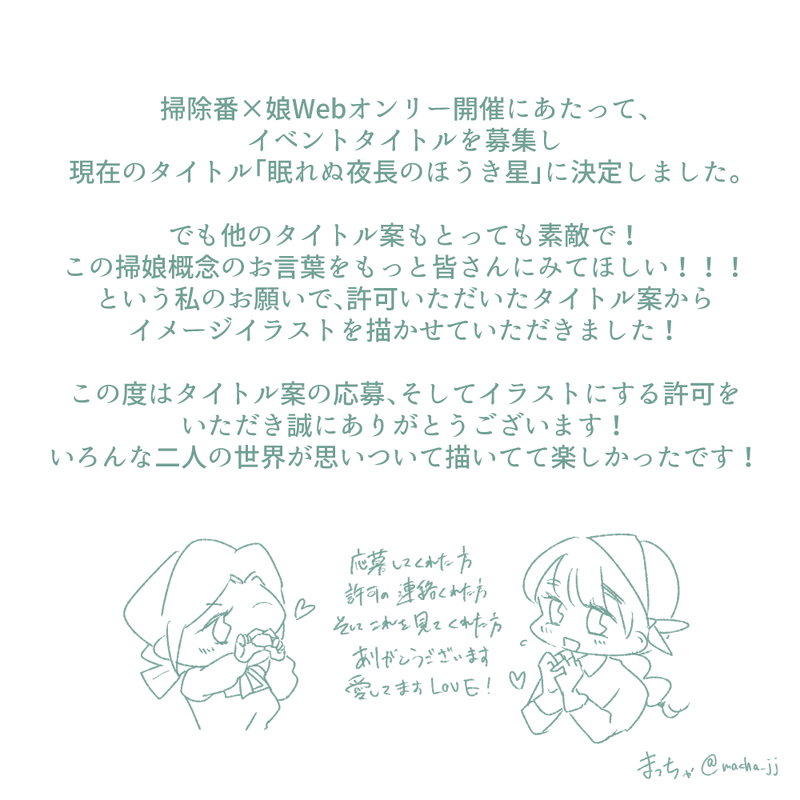 掃除番×娘Webオンリー開催にあたって、
イベントタイトルを募集し
現在のタイトル「眠れぬ夜長のほうき星」に決定しました。
でも他のタイトル案もとっても素敵で！
この掃娘概念のお言葉をもっと皆さんにみてほしい！！！
という私のお願いで、許可いただいたタイトル案から
イメージイラストを描かせていただきました！
この度はタイトル案の応募、そしてイラストにする許可を
いただき誠にありがとうございます！
いろんな二人の世界が思いついて描いてて楽しかったです！
応募してくれた方
許可の連絡くれた方
そしてこれを見てくれた方
ありがとうございます
愛してます LOVE！
まっちゃ @macha_jj